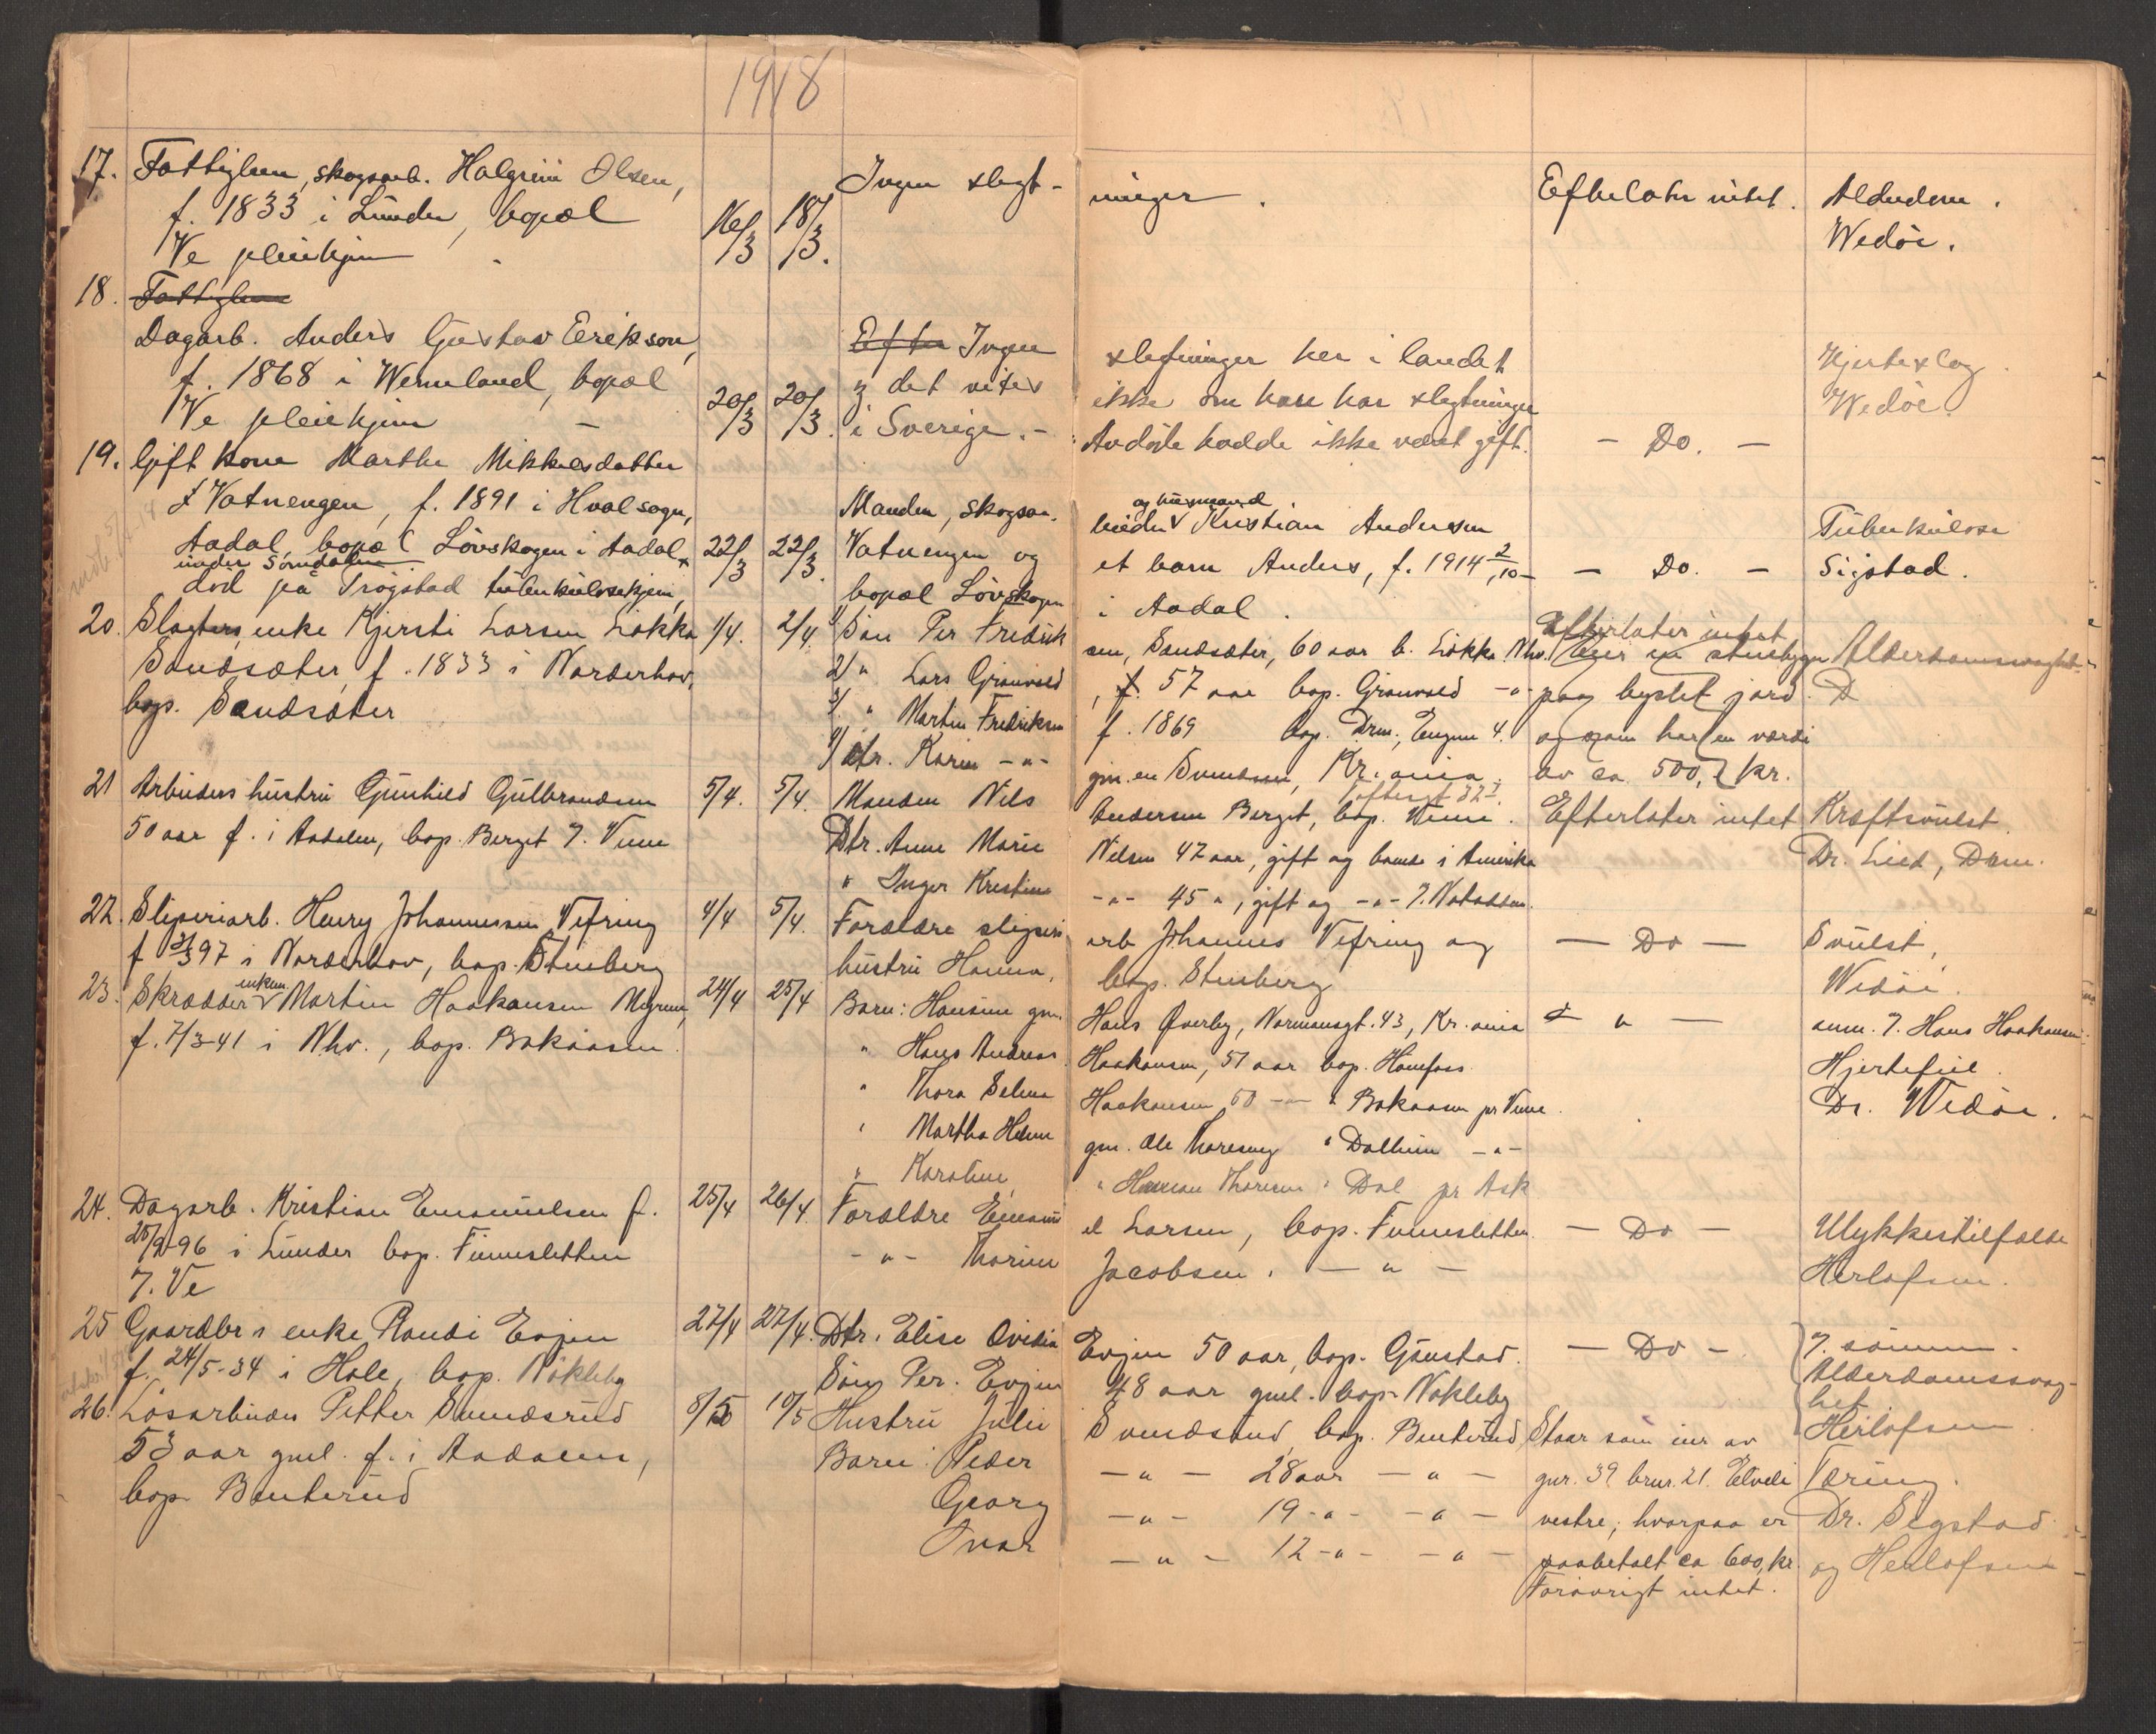 1918
17. Fattiglem, skogsarb. Halgrim Olsen,
f. 1833 i Lunder, bopæl
Ve pleiehjem
16/3 18/3.
Ingen slegt-
ninger.
Efterlater intet.
Alderdom.
Wedøe.
18. Fattiglem
Dagarb. Anders Gustav Erikson,
f. 1868 i Wermland, bopæl
Ve pleiehjem —
20/3 20/3.
Efter Ingen
det vites
i Sverige. -
slegtninger her i landet
ikke om hare har slegtninger
Avdøde hadde ikke været gift.
— Do. —
Hjerteslag.
Wedøe.
19. Gift kone Marthe Mikkelsdatter
Vatnengen, f. 1891 i Hval sogn,
Aadal, bopæl Lövskogen i Aadal
under Sørndalen
død på Trögstad tuberkulosehjem,
22/3 22/3.
Manden, skogsar-
Vatnengen og
bopæl Lövskogen
og husmand
beider Kristian Andersen
et barn Anders, f. 1914 2/10 -
i Aadal.
— Do. —
Tuberkulose
Sigstad.
20. Slagters enke Kjersti Larsen Løkka
Sandsæter, f. 1833 i Norderhov,
bop. Sandsæter
1/4. 2/4.
1/ Søn Per Fredrik
2/ " Lars Grønvold
3/ " Martin Fredriksen
4/ dtr. Karin -"-
sen, Sandsæter, 60 aar b. Løkka Nhv.
, f. 57 aar bop. Grønvold -"-
f. 1869 bop. Drm., Engene 4.
gm. en Svendsen, Kr.ania.
Efterlater intet
Eier en stuebygn
paa bygslet jord.
og som har en værdi
av ca 500, kr.
Alderdomssvaghet
D
21 Arbeiders hustru Gunhild Gulbrandsen
50 aar f. i Aadalen, bop. Berget 7. Veme
5/4. 5/4.
Manden Nils
Dtr. Anne Marie
" Inger Kristine
Andersen Berget, bop. Veme.
Nilsen 47 aar, gift og boende i Amerika
-"- 45 ", gift og -"- 7. Notodden.
Efterlater intet
Kræftsvulst.
Dr. Lied, Drm.
22. Sliperiarb. Henry Johannessen Vefring
f 3/397 i Norderhov, bop. Stensberg
4/4 5/4.
Forældre sliperi
hustru Hanna,
arb Johannes Vefring og
bop. Stensberg
— Do —
Svulst,
Wedøe.
23. Skrædder enkem Martin Haakansen Megrund,
f. 7/3-41 i Nhv., bop. Bakaasen
24/4 25/4
Barn: Hansine gm.
" Hans Andreas
" Thora Selma
" Martha Helene
" Karoline
Hans Øverby, Normansgt. 43, Kr.ania
Haakansen, 51 aar bop. Hønefoss.
Haakansen, 50 -"- " Bakaasen pr Veme.
gm. Ole Thoresen " Dalheim -"-
" Herman Thoresen " Dal pr Ask
— " —
anm. 7. Hans Haakansen.
Hjertefeil.
Dr. Wedøe.
24. Dagarb. Kristian Emanuelsen f.
25/9-96 i Lunder bop. Finnesletten
7. Ve
25/4 26/4.
Forældre Emanu
-"- Thorine
el Larsen, bop. Finnesletten.
Jacobsen. — " —
— Do —
Ulykkestilfælde
Herlofsen.
25 Gaardbr.s enke Randi Evjen
f. 24/5-34 i Hole, bop. Nökleby
27/4 27/4.
Dtr. Elise Ovidia
Søn Per. Evjen
Evjen 50 aar, bop. Gjønstad.
48 aar gml. bop. Nökleby
— Do —
7. sønnen.
Alderdomssvag-
het
Herlofsen
26. Løsarbeider Petter Svendsrud
53 aar gml. f. i Aadalen,
bop. Benterud
8/5 10/5
Hustru Julie
Barn: Peder
Georg
Ivar
Svendsrud, bop. Benterud
— " — 28 aar — " —
— " — 19 -"- — " —
— " — 12 -"- — " —
Staar som eier av
gnr. 39 brnr. 21. Elveli
vestre; hvorpaa er
paabetalt ca 600, kr.
Forøvrigt intet.
Tæring.
Dr. Sigstad
og Herlofsen